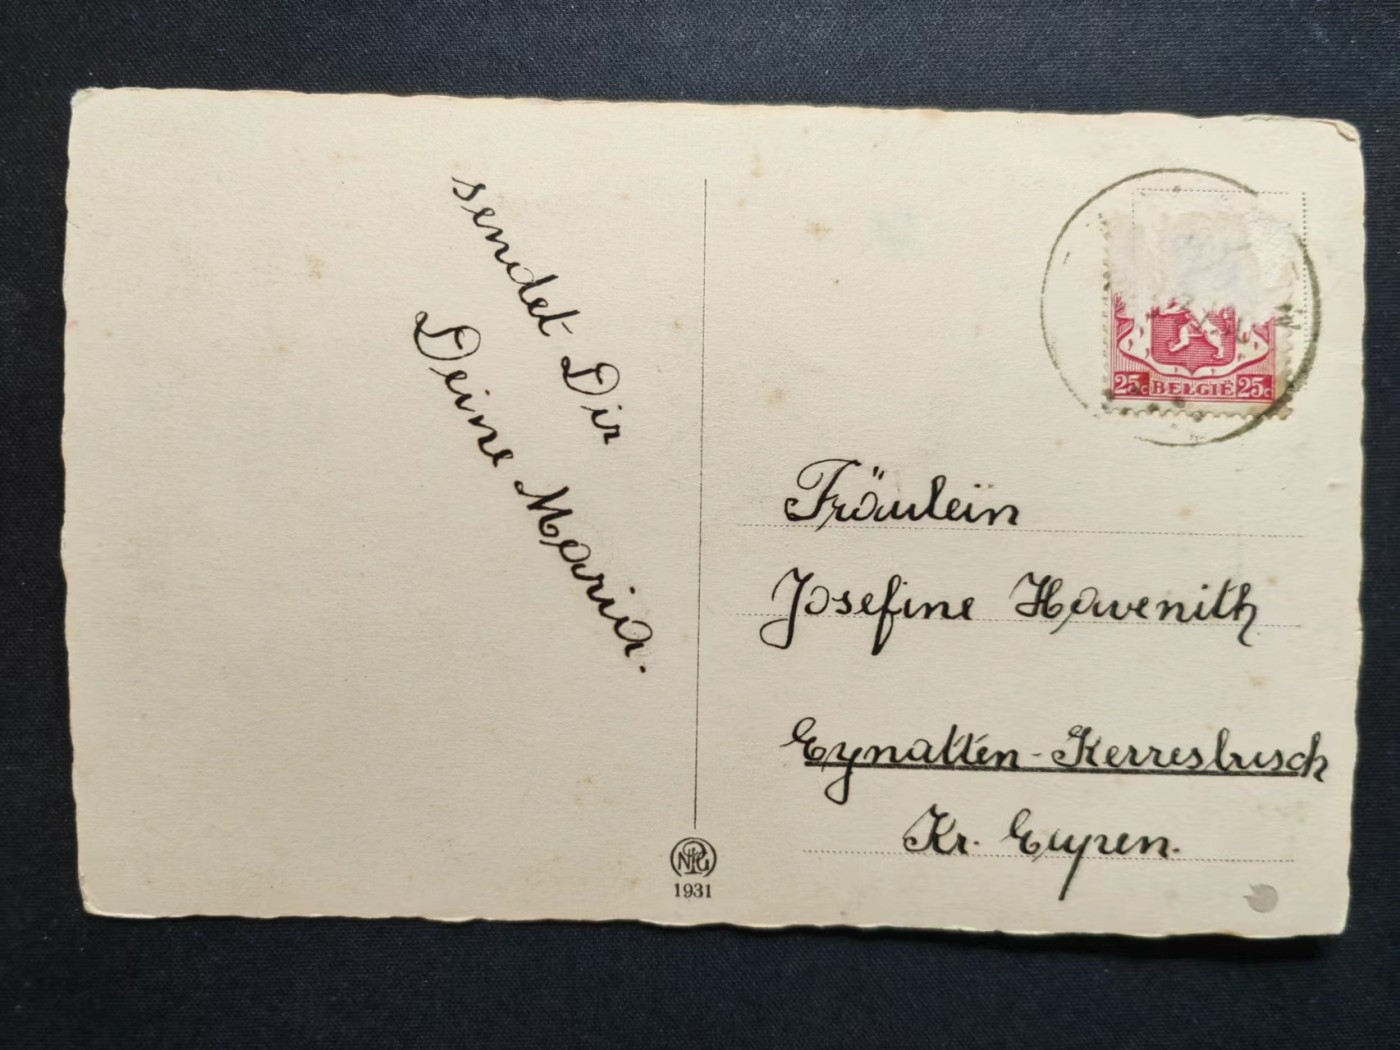 sendet Dir
Deine Maria.
25c BELGIË 25c
Fräulein
Josefine Havenith
Eynatten-Kerresbusch
Kr. Eupen.
NPG
1931